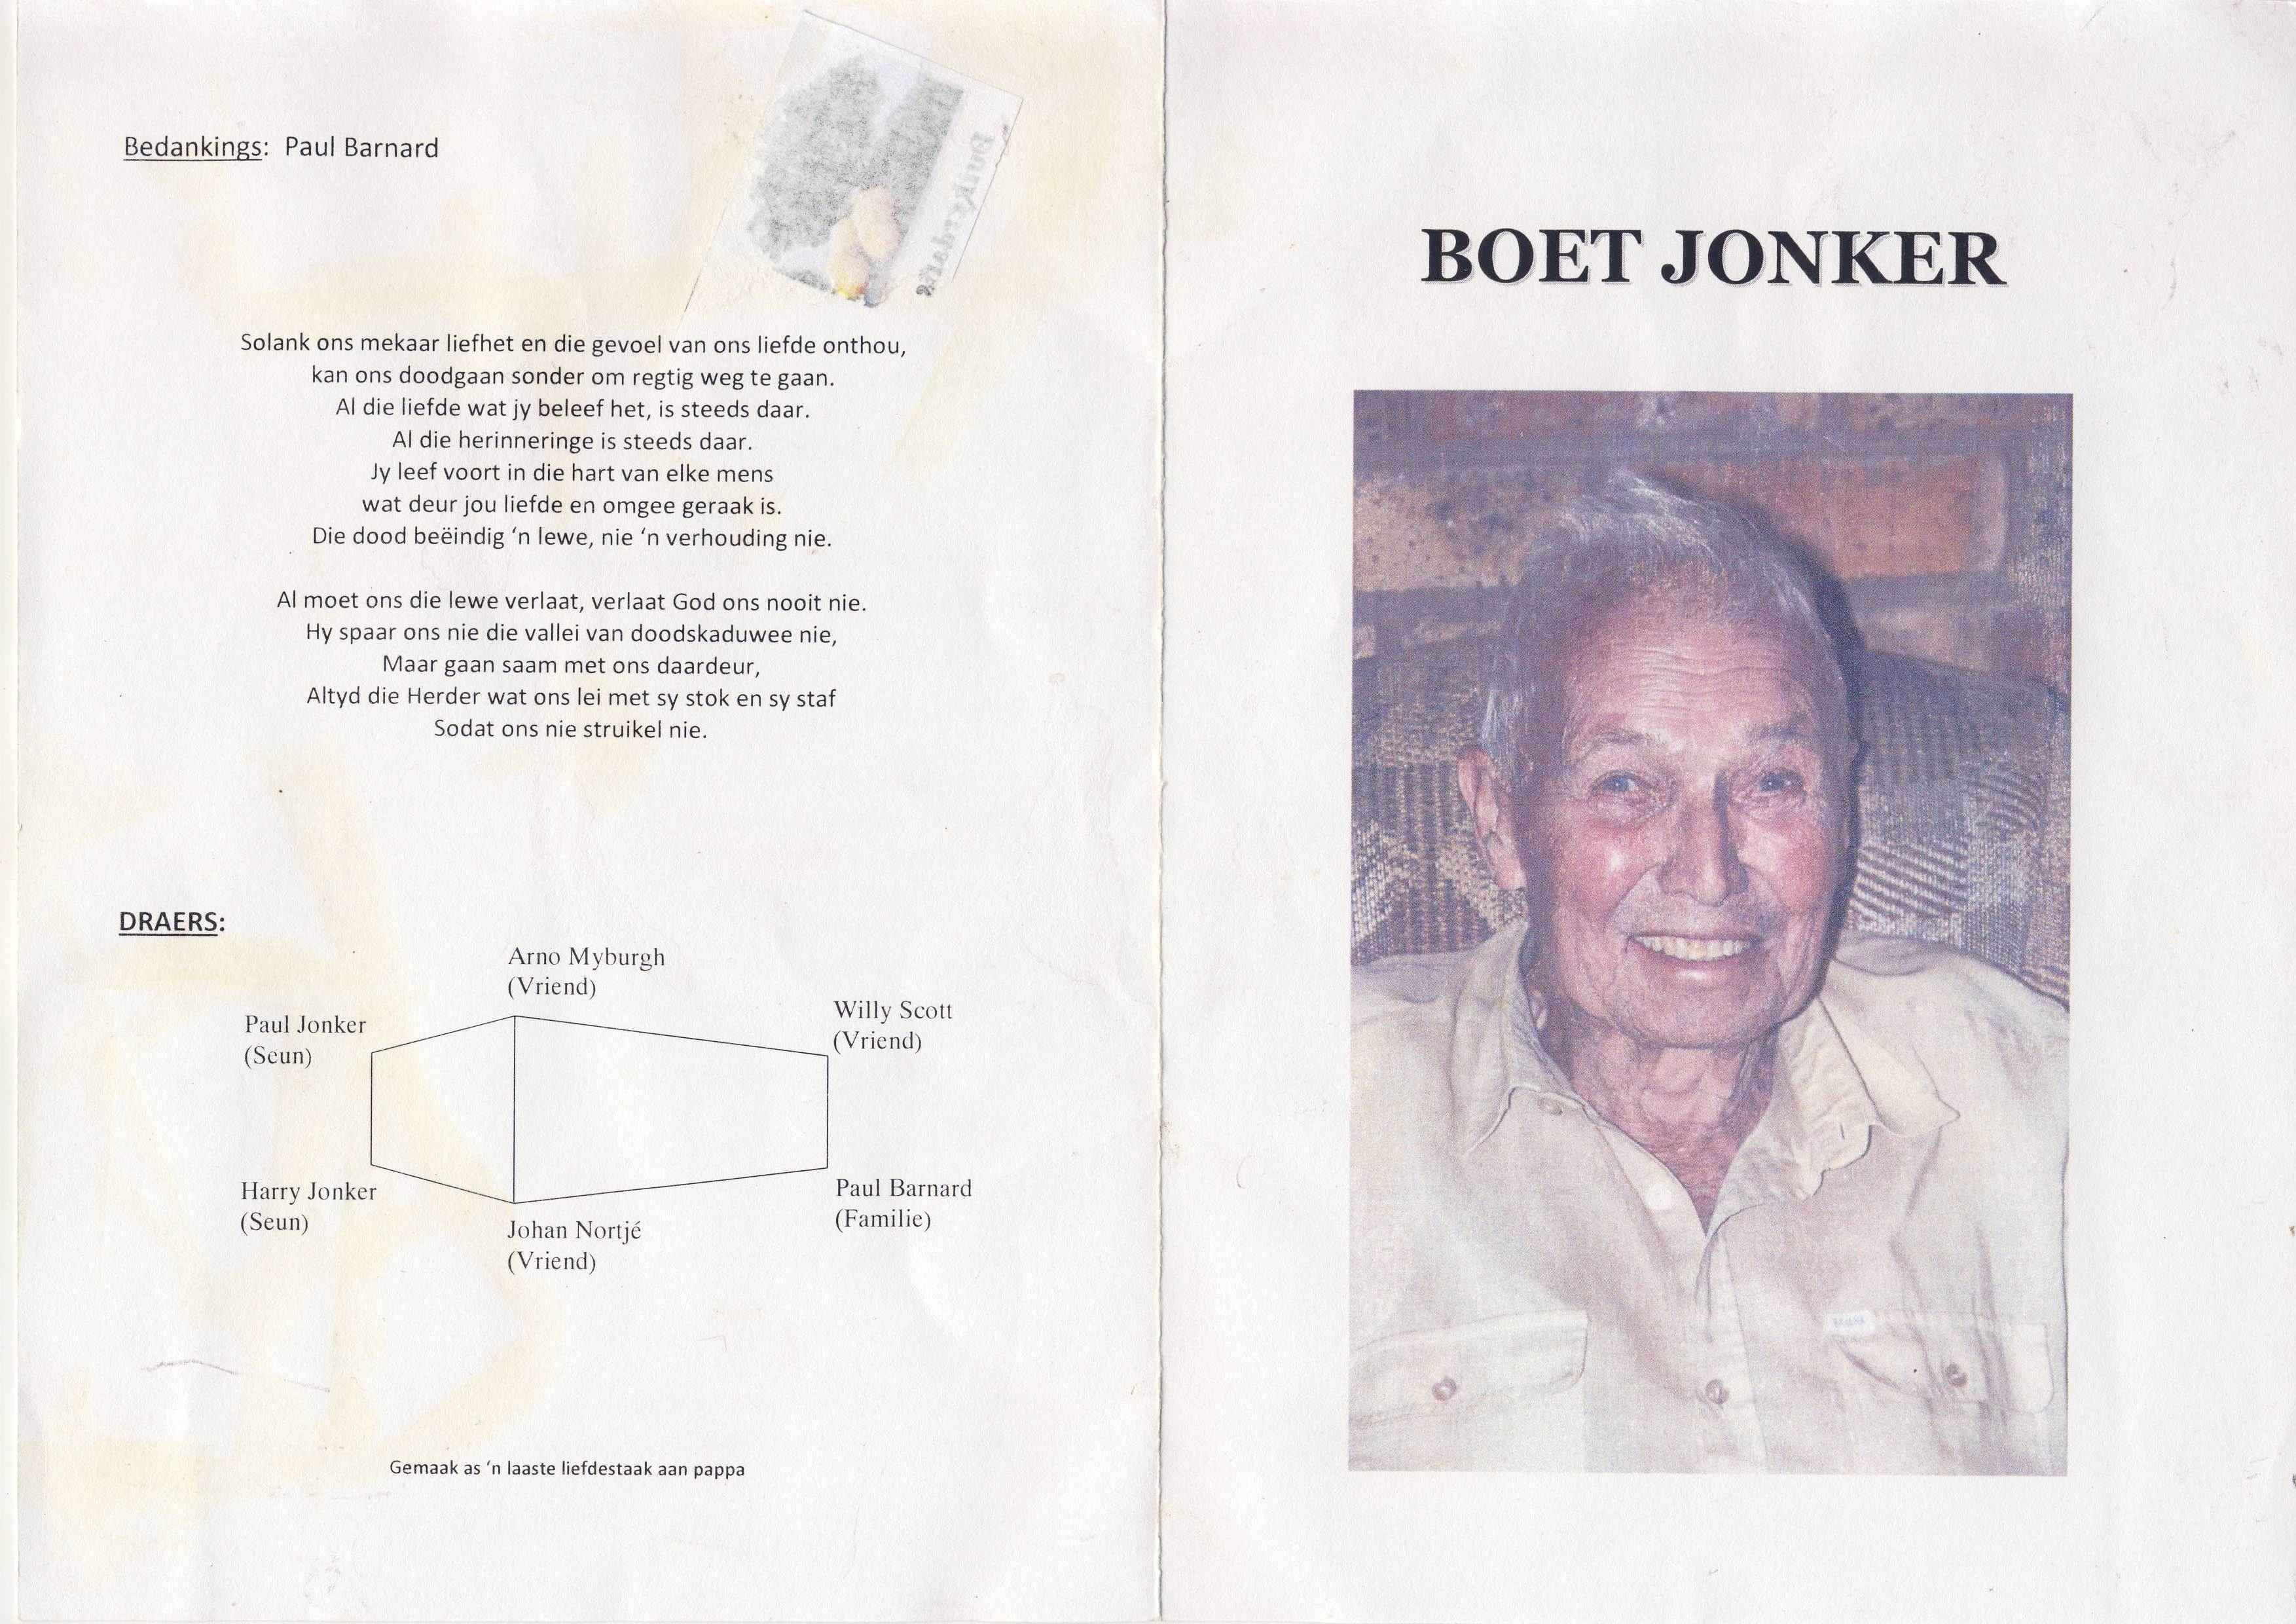 Bedankings: Paul Barnard
Solank ons mekaar liefhet en die gevoel van ons liefde onthou,
kan ons doodgaan sonder om regtig weg te gaan.
Al die liefde wat jy beleef het, is steeds daar.
Al die herinneringe is steeds daar.
Jy leef voort in die hart van elke mens
wat deur jou liefde en omgee geraak is.
Die dood beëindig ‘n lewe, nie ‘n verhouding nie.
Al moet ons die lewe verlaat, verlaat God ons nooit nie.
Hy spaar ons nie die vallei van doodskaduwee nie,
Maar gaan saam met ons daardeur,
Altyd die Herder wat ons lei met sy stok en sy staf
Sodat ons nie struikel nie.
DRAERS:
Arno Myburgh
(Vriend)
Willy Scott
(Vriend)
Paul Jonker
(Seun)
Harry Jonker
(Seun)
Paul Barnard
(Familie)
Johan Nortjé
(Vriend)
Gemaak as ‘n laaste liefdestaak aan pappa
BOET JONKER